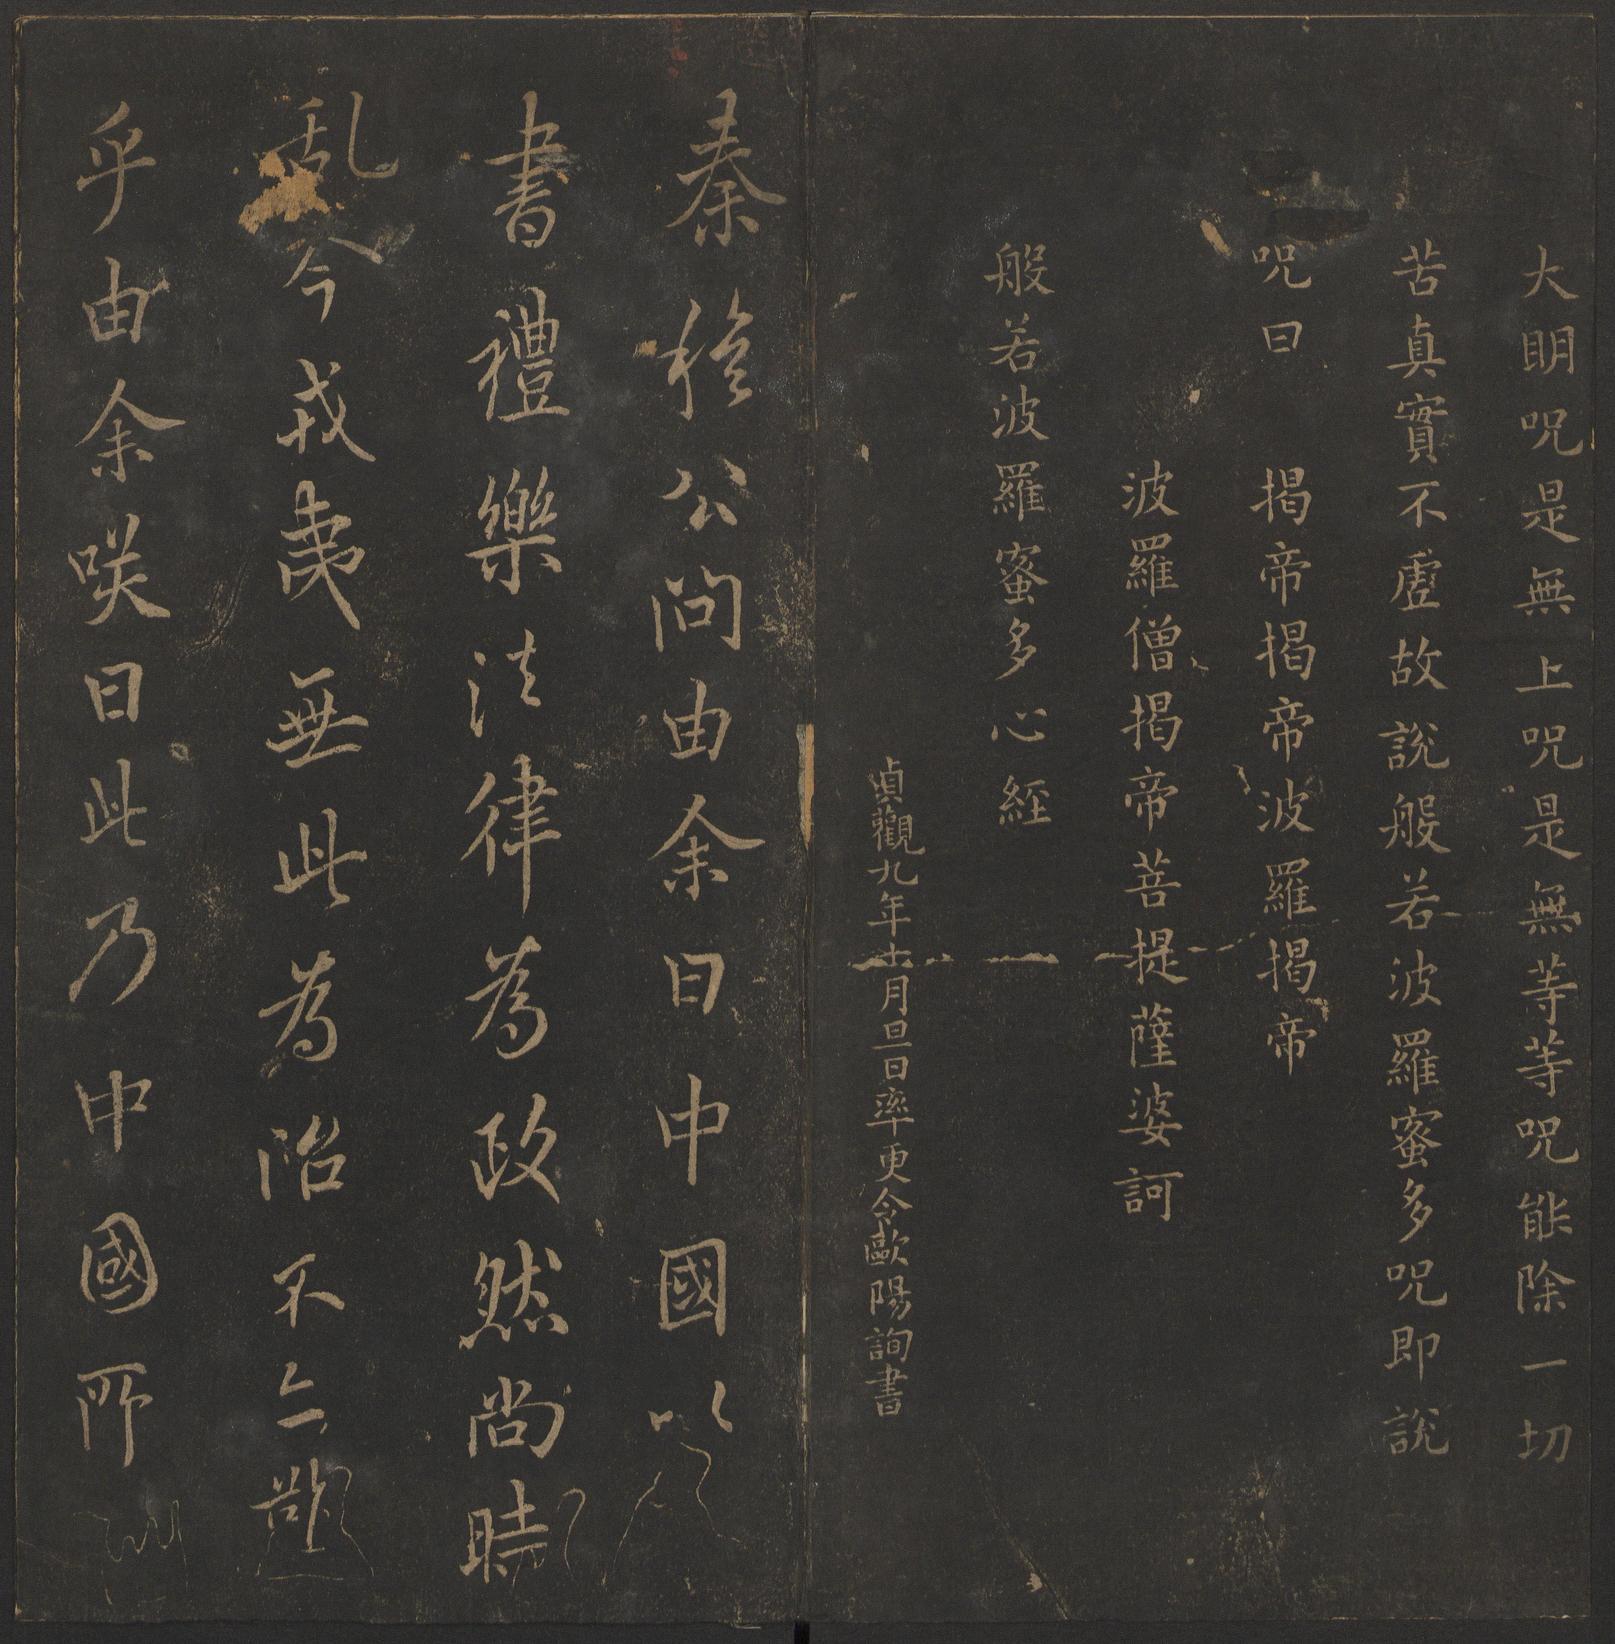 大明呪是無上呪是無等等呪能除一切
苦真實不虛故說般若波羅蜜多呪即說
呪曰 揭帝揭帝波羅揭帝
波羅僧揭帝菩提薩婆訶
般若波羅蜜多心經
貞觀九年十月旦日率更令歐陽詢書
秦穆公問由余曰中國以
書禮樂法律為政然尚時
乱今戎夷無此為治不亦難
乎由余咲曰此乃中國所